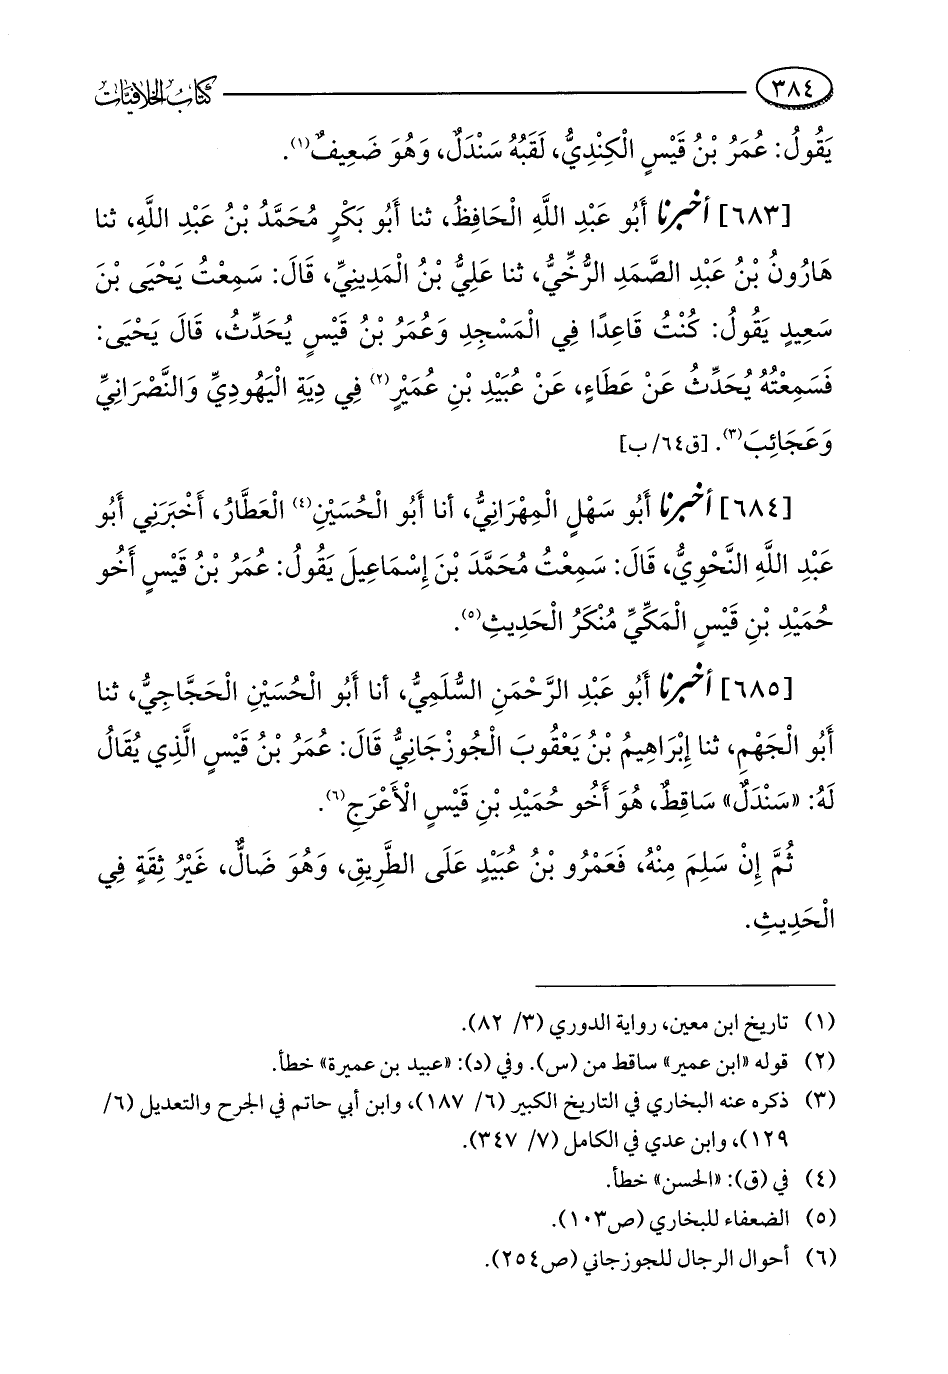 ٣٨٤ كتاب الخلافيات
يَقُولُ: عُمَرُ بْنُ قَيْسٍ الْكِنْدِيُّ، لَقَبُهُ سَنْدَلٌ، وَهُوَ ضَعِيفٌ(١).
[٦٨٣] أخبرنا أَبُو عَبْدِ اللَّهِ الْحَافِظُ، ثنا أَبُو بَكْرٍ مُحَمَّدُ بْنُ عَبْدِ اللَّهِ، ثنا
هَارُونُ بْنُ عَبْدِ الصَّمَدِ الرُّخِّيُّ، ثنا عَلِيُّ بْنُ الْمَدِينِيِّ، قَالَ: سَمِعْتُ يَحْيَى بْنَ
سَعِيدٍ يَقُولُ: كُنْتُ قَاعِدًا فِي الْمَسْجِدِ وَعُمَرُ بْنُ قَيْسٍ يُحَدِّثُ، قَالَ يَحْيَى:
فَسَمِعْتُهُ يُحَدِّثُ عَنْ عَطَاءٍ، عَنْ عُبَيْدِ بْنِ عُمَيْرٍ(٢) فِي دِيَةِ الْيَهُودِيِّ وَالنَّصْرَانِيِّ
وَعَجَائِبَ(٣). [ق٦٤/ ب]
[٦٨٤] أخبرنا أَبُو سَهْلٍ الْمِهْرَانِيُّ، أنا أَبُو الْحُسَيْنِ(٤) الْعَطَّارُ، أَخْبَرَنِي أَبُو
عَبْدِ اللَّهِ النَّحْوِيُّ، قَالَ: سَمِعْتُ مُحَمَّدَ بْنَ إِسْمَاعِيلَ يَقُولُ: عُمَرُ بْنُ قَيْسٍ أَخُو
حُمَيْدِ بْنِ قَيْسٍ الْمَكِّيِّ مُنْكَرُ الْحَدِيثِ(٥).
[٦٨٥] أخبرنا أَبُو عَبْدِ الرَّحْمَنِ السُّلَمِيُّ، أنا أَبُو الْحُسَيْنِ الْحَجَّاجِيُّ، ثنا
أَبُو الْجَهْمِ، ثنا إِبْرَاهِيمُ بْنُ يَعْقُوبَ الْجُوزْجَانِيُّ قَالَ: عُمَرُ بْنُ قَيْسٍ الَّذِي يُقَالُ
لَهُ: «سَنْدَلٌ» سَاقِطٌ، هُوَ أَخُو حُمَيْدِ بْنِ قَيْسٍ الْأَعْرَجِ(٦).
ثُمَّ إِنْ سَلِمَ مِنْهُ، فَعَمْرُو بْنُ عُبَيْدٍ عَلَى الطَّرِيقِ، وَهُوَ ضَالٌّ، غَيْرُ ثِقَةٍ فِي
الْحَدِيثِ.
(١) تاريخ ابن معين، رواية الدوري (٣/ ٨٢).
(٢) قوله «ابن عمير» ساقط من (س). وفي (د): «عبيد بن عميرة» خطأ.
(٣) ذكره عنه البخاري في التاريخ الكبير (٦/ ١٨٧)، وابن أبي حاتم في الجرح والتعديل (٦/
١٢٩)، وابن عدي في الكامل (٧/ ٣٤٧).
(٤) في (ق): «الحسن» خطأ.
(٥) الضعفاء للبخاري (ص١٠٣).
(٦) أحوال الرجال للجوزجاني (ص٢٥٤).